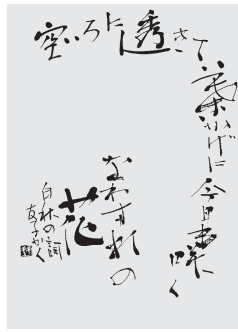 空いろに透きて
葉かげに今日も咲く
なわすれの
花
白秋の詩
友子かく